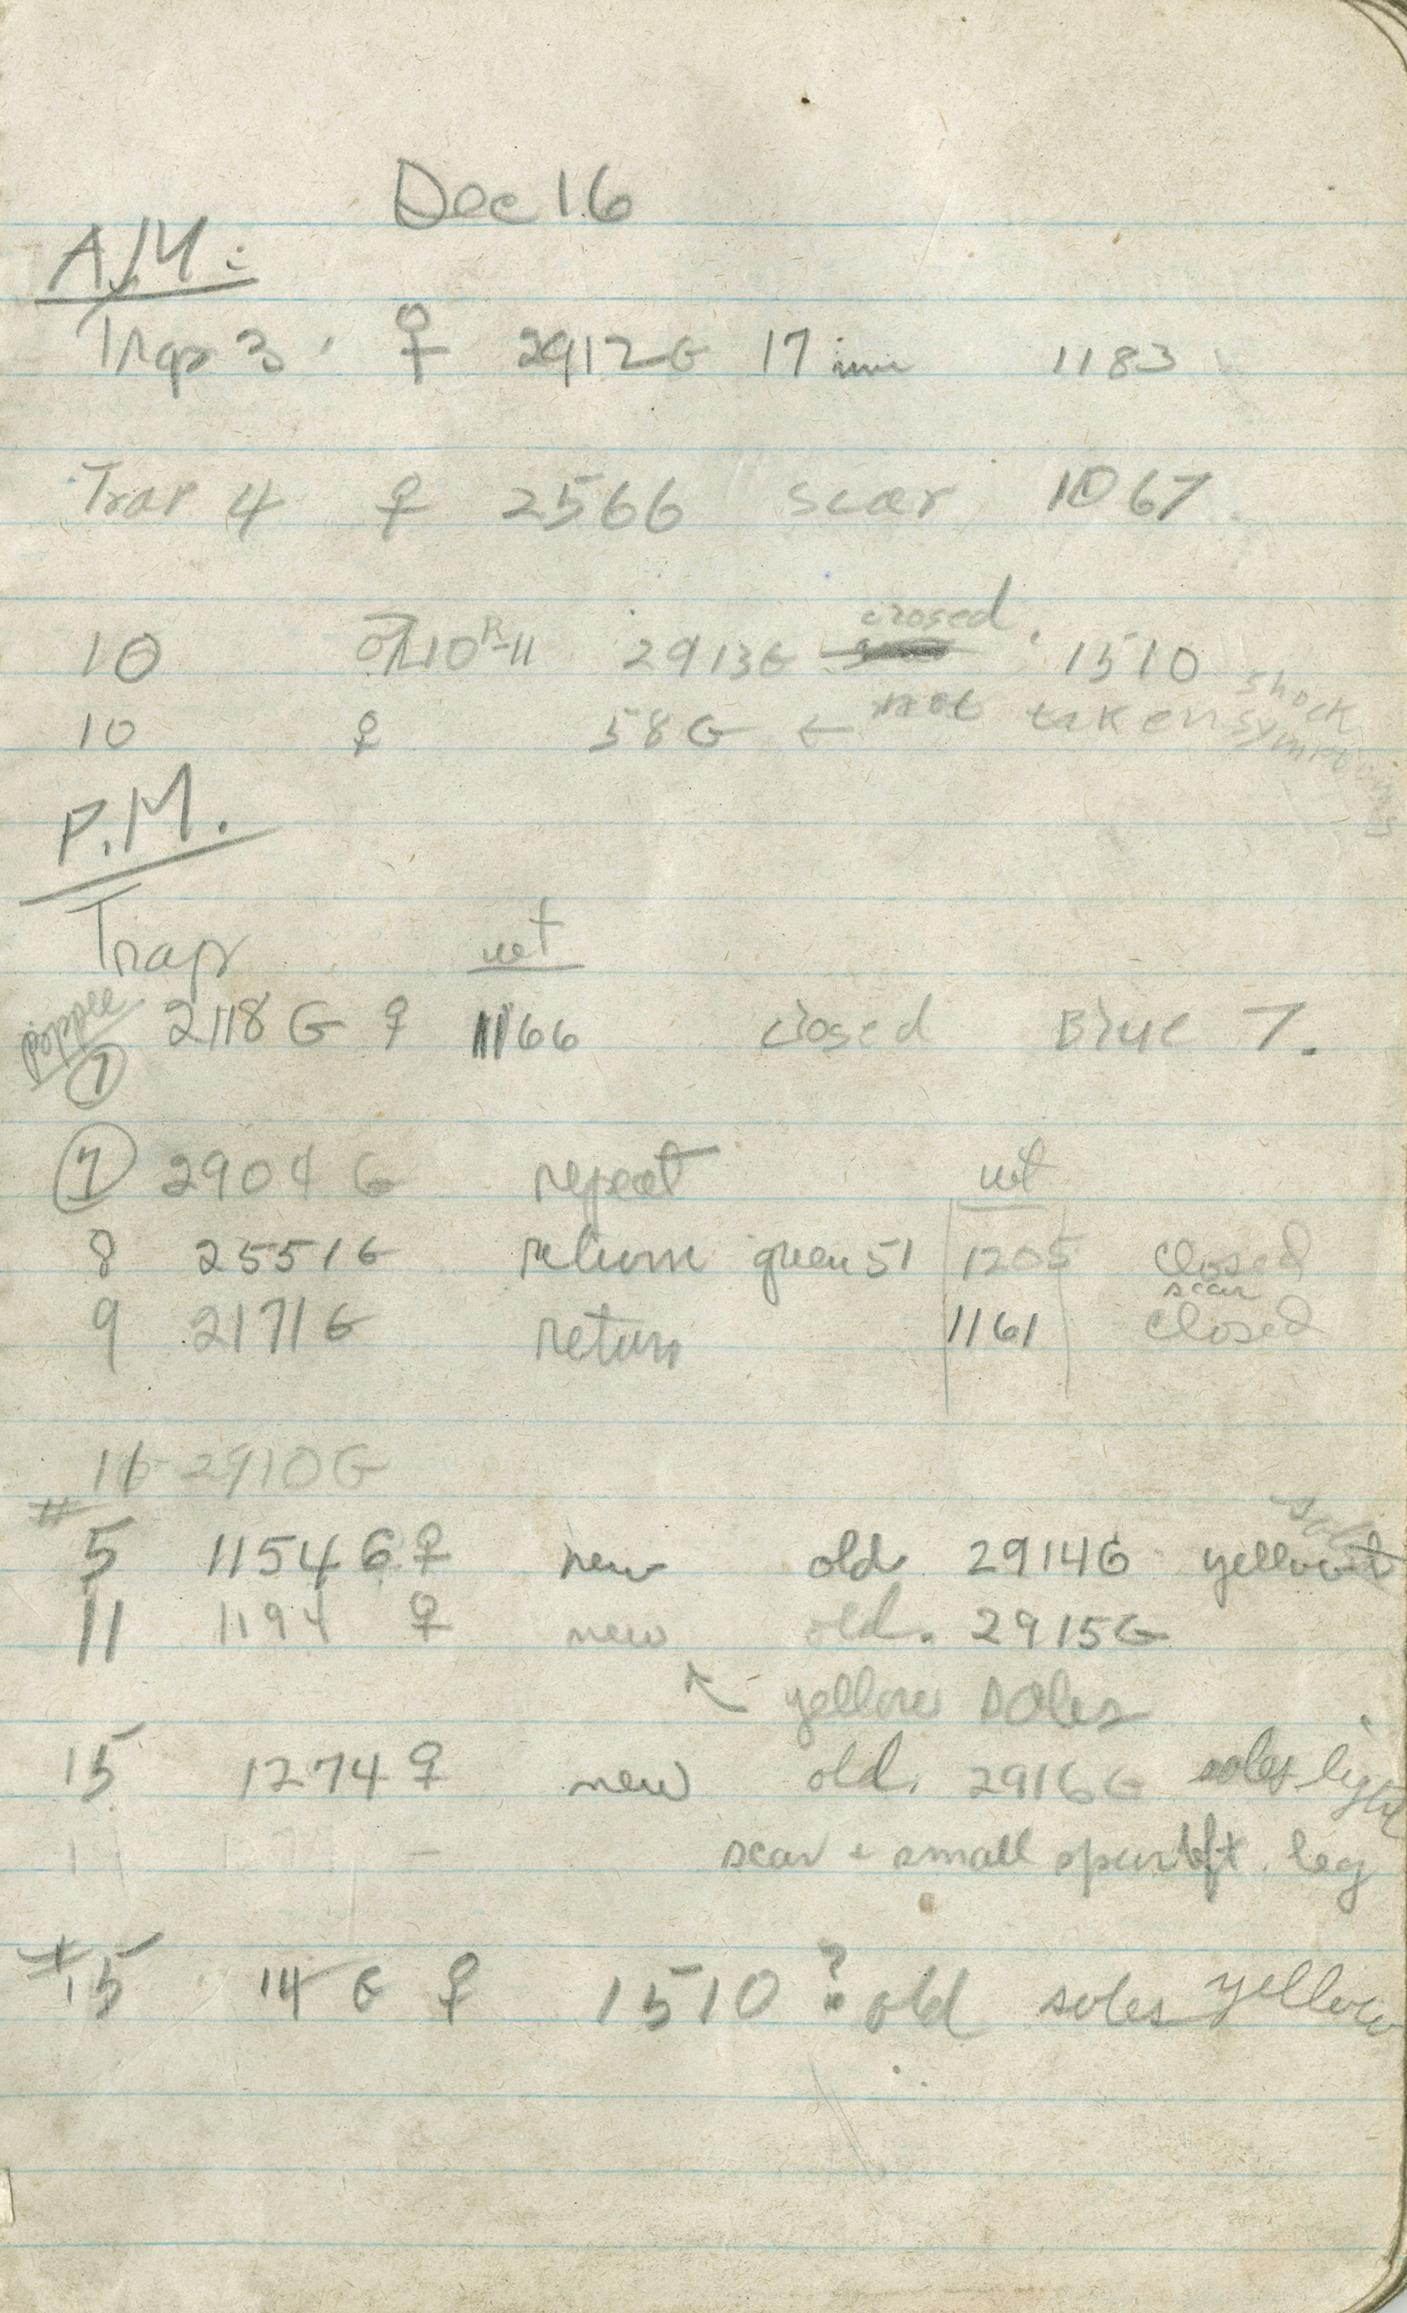 Dec 16
A.M.:
Trap 3 ♀ 2912G 17 mm 1183
Trap 4 ♀ 2566 scar 1067
closed
10 ♂ 10 R-11 2913G 1510
10 ♀ 58G ← not taken shock symptoms
P.M.
Trap wt
poppee
7 2118G ♀ 1166 closed Blue 7.
7 2904G repeat wt
8 2551G return green 51 1205 closed
scar
9 2171G return 1161 closed
16 2910G
# sole
5 1154G ♀ new old 2914G yellow
11 1194 ♀ new old. 2915G
↖ yellow soles
15 1274 ♀ new old. 2916G soles light
scar + small spur left. leg
#15 14G ♀ 1510 ? old soles yellow